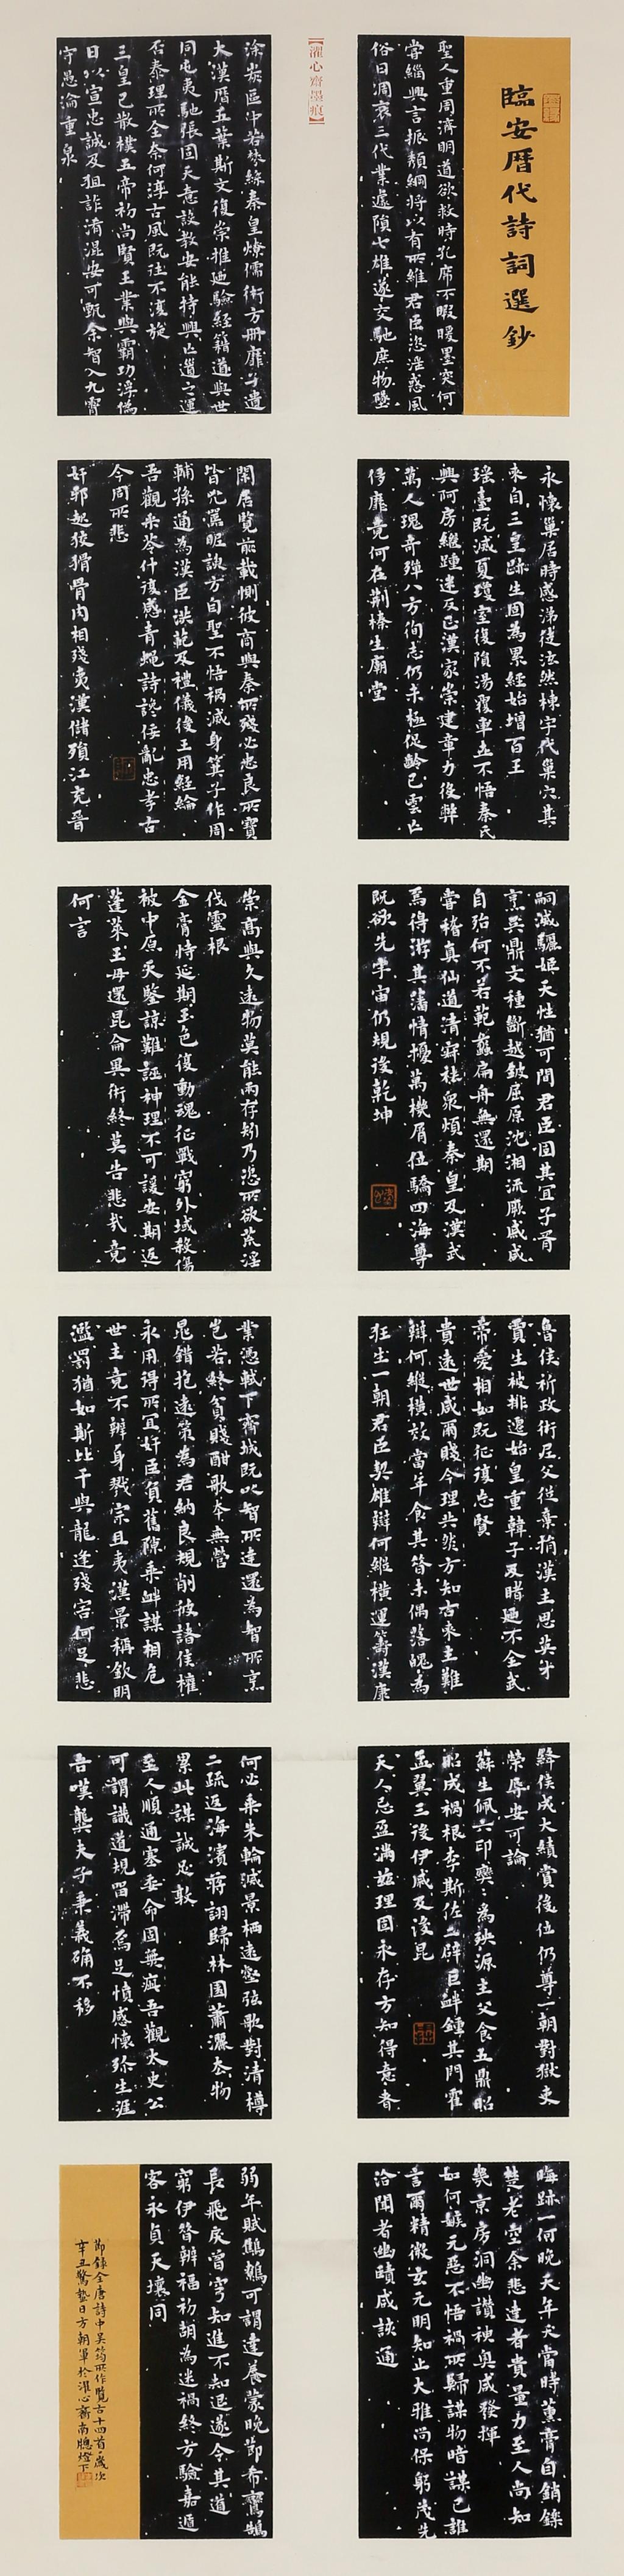 臨安曆代詩詞選鈔
聖人重周濟明道欲救時孔席不暇暖墨突何
嘗緇興言振頹綱將以有所維君臣恣淫惑風
俗日凋衰三代業遽隕七雄遂交馳庶物墮
【濯心齋墨痕】
塗炭區中若棼絲秦皇燎儒術方冊靡孑遺
大漢曆五葉斯文復崇推迺驗經籍道與世
同屯夷馳張固天意設教安能持興亡道之運
否泰理所全奈何淳古風既往不復旋
三皇已散樸五帝初尚賢王業與霸功浮僞
日以宣忠誠及狙詐淆混安可甄余智入九霄
守愚淪重泉
永懷巢居時感涕徒泫然棟宇代巢穴其
來自三皇跡生固為累經始增百王
瑤臺既滅夏瓊室復隕湯覆車世不悟秦氏
興阿房繼踵迷反正漢家崇建章力役弊
萬人瑰奇殫八方徇志仍未極促齡已雲亡
侈靡竟何在荊榛生廟堂
閑居覽前載惻彼商與秦所殘必忠良所寶
皆凶嚚昵諛方自聖不悟禍滅身箕子作周
輔孫通為漢臣洪範及禮儀後王用經綸
吾觀采苓什復感青蠅詩讒佞亂忠孝古
今同所悲
奸邪起狡猾骨肉相殘夷漢儲殞江充晉
嗣滅驪姬天性猶可間君臣固其宜子胥
烹吳鼎文種斷越鈹屈原沈湘流厥戚咸
自貽何不若範蠡扁舟無還期
嘗稽真仙道清寂祛衆煩秦皇及漢武
焉得游其藩情擾萬機屑位驕四海尊
既欲先宇宙仍規後乾坤
崇高與久遠物莫能兩存矧乃恣所欲荒淫
伐靈根
金膏恃延期玉色復動魂征戰窮外域殺傷
被中原天鑒諒難誣神理不可諼安期返
蓬萊王母還昆侖異術終莫告悲哉竟
何言
魯侯祈政術尼父從棄捐漢主思英才
賈生被排遷始皇重韓子及睹迺不全武
帝愛相如既征復忘賢
貴遠世咸爾賤今理共然方知古來主難
辯何縱橫效當年食其昔未偶落魄為
狂生一朝君臣契雄辯何縱橫運籌漢康
業憑軾下齊城既以智所達還為智所烹
豈若終貧賤酣歌本無營
晁錯抱遠策為君納良規削彼諸侯權
永用得所宜奸臣負舊隙乘釁謀相危
世主竟不辨身戮宗且夷漢景稱欽明
濫罰猶如斯比干與龍逢殘害何足悲
絳侯成大績賞復位仍尊一朝對獄吏
榮辱安可論
蘇生佩六印奕〻為殃源主父食五鼎昭
昭成禍根李斯佐二辟巨釁鍾其門霍
孟翼三後伊戚及後昆
天人忌盈滿茲理固永存方知得意者
何必乘朱輪滅景栖遠壑弦歌對清樽
二疏返海濱蔣詡歸林園蕭灑去物
累此謀誠足敦
至人順通塞委命固無疵吾觀太史公
可謂識道規留滯焉足憤感懷殄生涯
吾嘆龔夫子秉義确不移
晦跡一何晚天年夭當時薰膏自銷鑠
楚老空余悲達者貴量力至人尚知
幾京房洞幽讚神奧咸發揮
如何嫉元惡不悟禍所歸謀物暗謀己誰
言爾精微玄元明知止大雅尚保躬茂先
洽聞者幽賾咸該通
弱年賦鷦鷯可謂達養蒙晚節希鸞鵠
長飛戾曾穹知進不知退遂令其道
窮伊昔辨福初胡為迷禍終方驗嘉遁
客永貞天壤同
節錄全唐詩中吳筠所作覽古十四首歲次
辛丑驚蟄日方朝軍於濯心齋南牕燈下